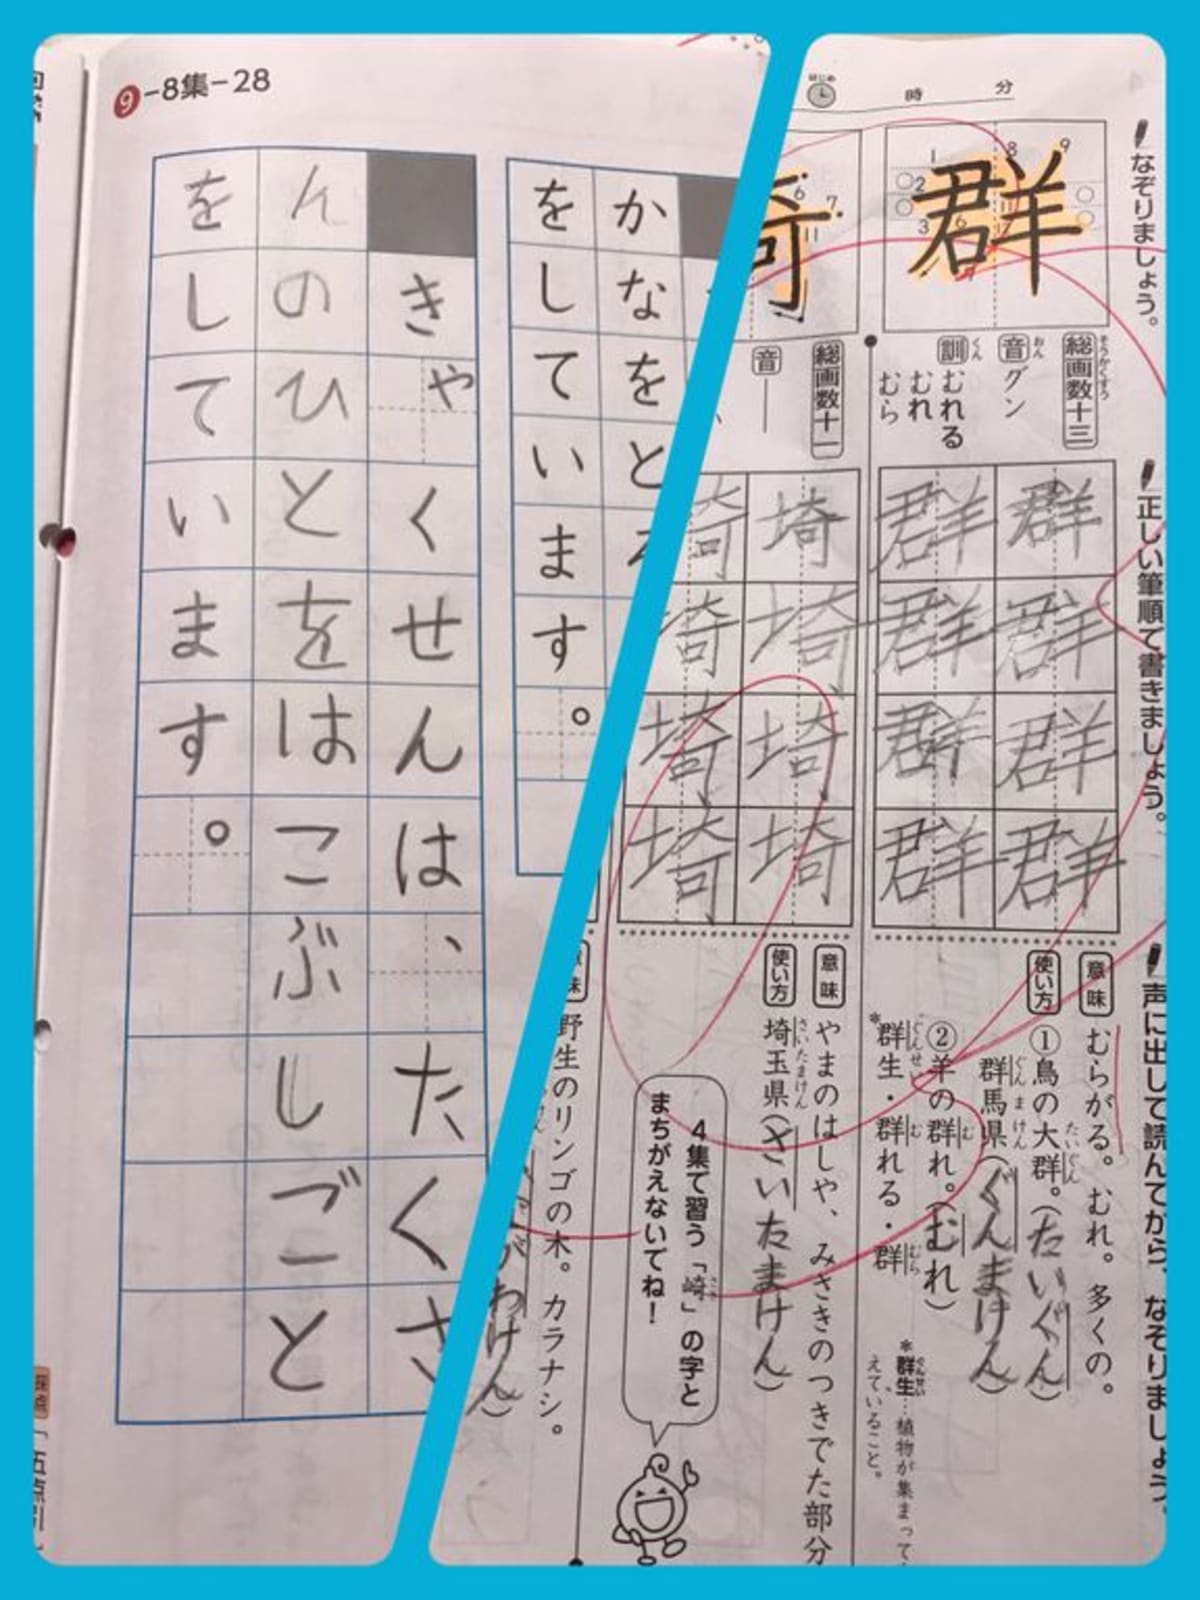 9-8集-28
きゃくせんは、たくさ
んのひとをはこぶしごと
をしています。
かなをと
をしています。
はじめ 時 分
なぞりましょう。
正しい筆順で書きましょう。
声に出して読んでから、なぞりましょう。
群
総画数十三
そうかくすう
音 グン
おん
訓 むれる
くん
むれ
むら
群 群 群 群
群 群 群 群
意味 むらがる。むれ。多くの。
使い方 ①鳥の大群。(たいぐん)
たいぐん
群馬県(ぐんまけん)
ぐんまけん
②羊の群れ。(むれ)
む
*群生・群れる・群
ぐんせい む むら
*群生…植物が集まって
ぐんせい
えていること。
埼
総画数十一
音 ―
埼 埼 埼 埼
埼 埼 埼 埼
意味 やまのはしや、みさきのつきでた部分
使い方 埼玉県(さいたまけん)
さいたまけん
4集で習う「崎」の字と
さき
まちがえないでね!
野生のリンゴの木。カラナシ。
わけん)